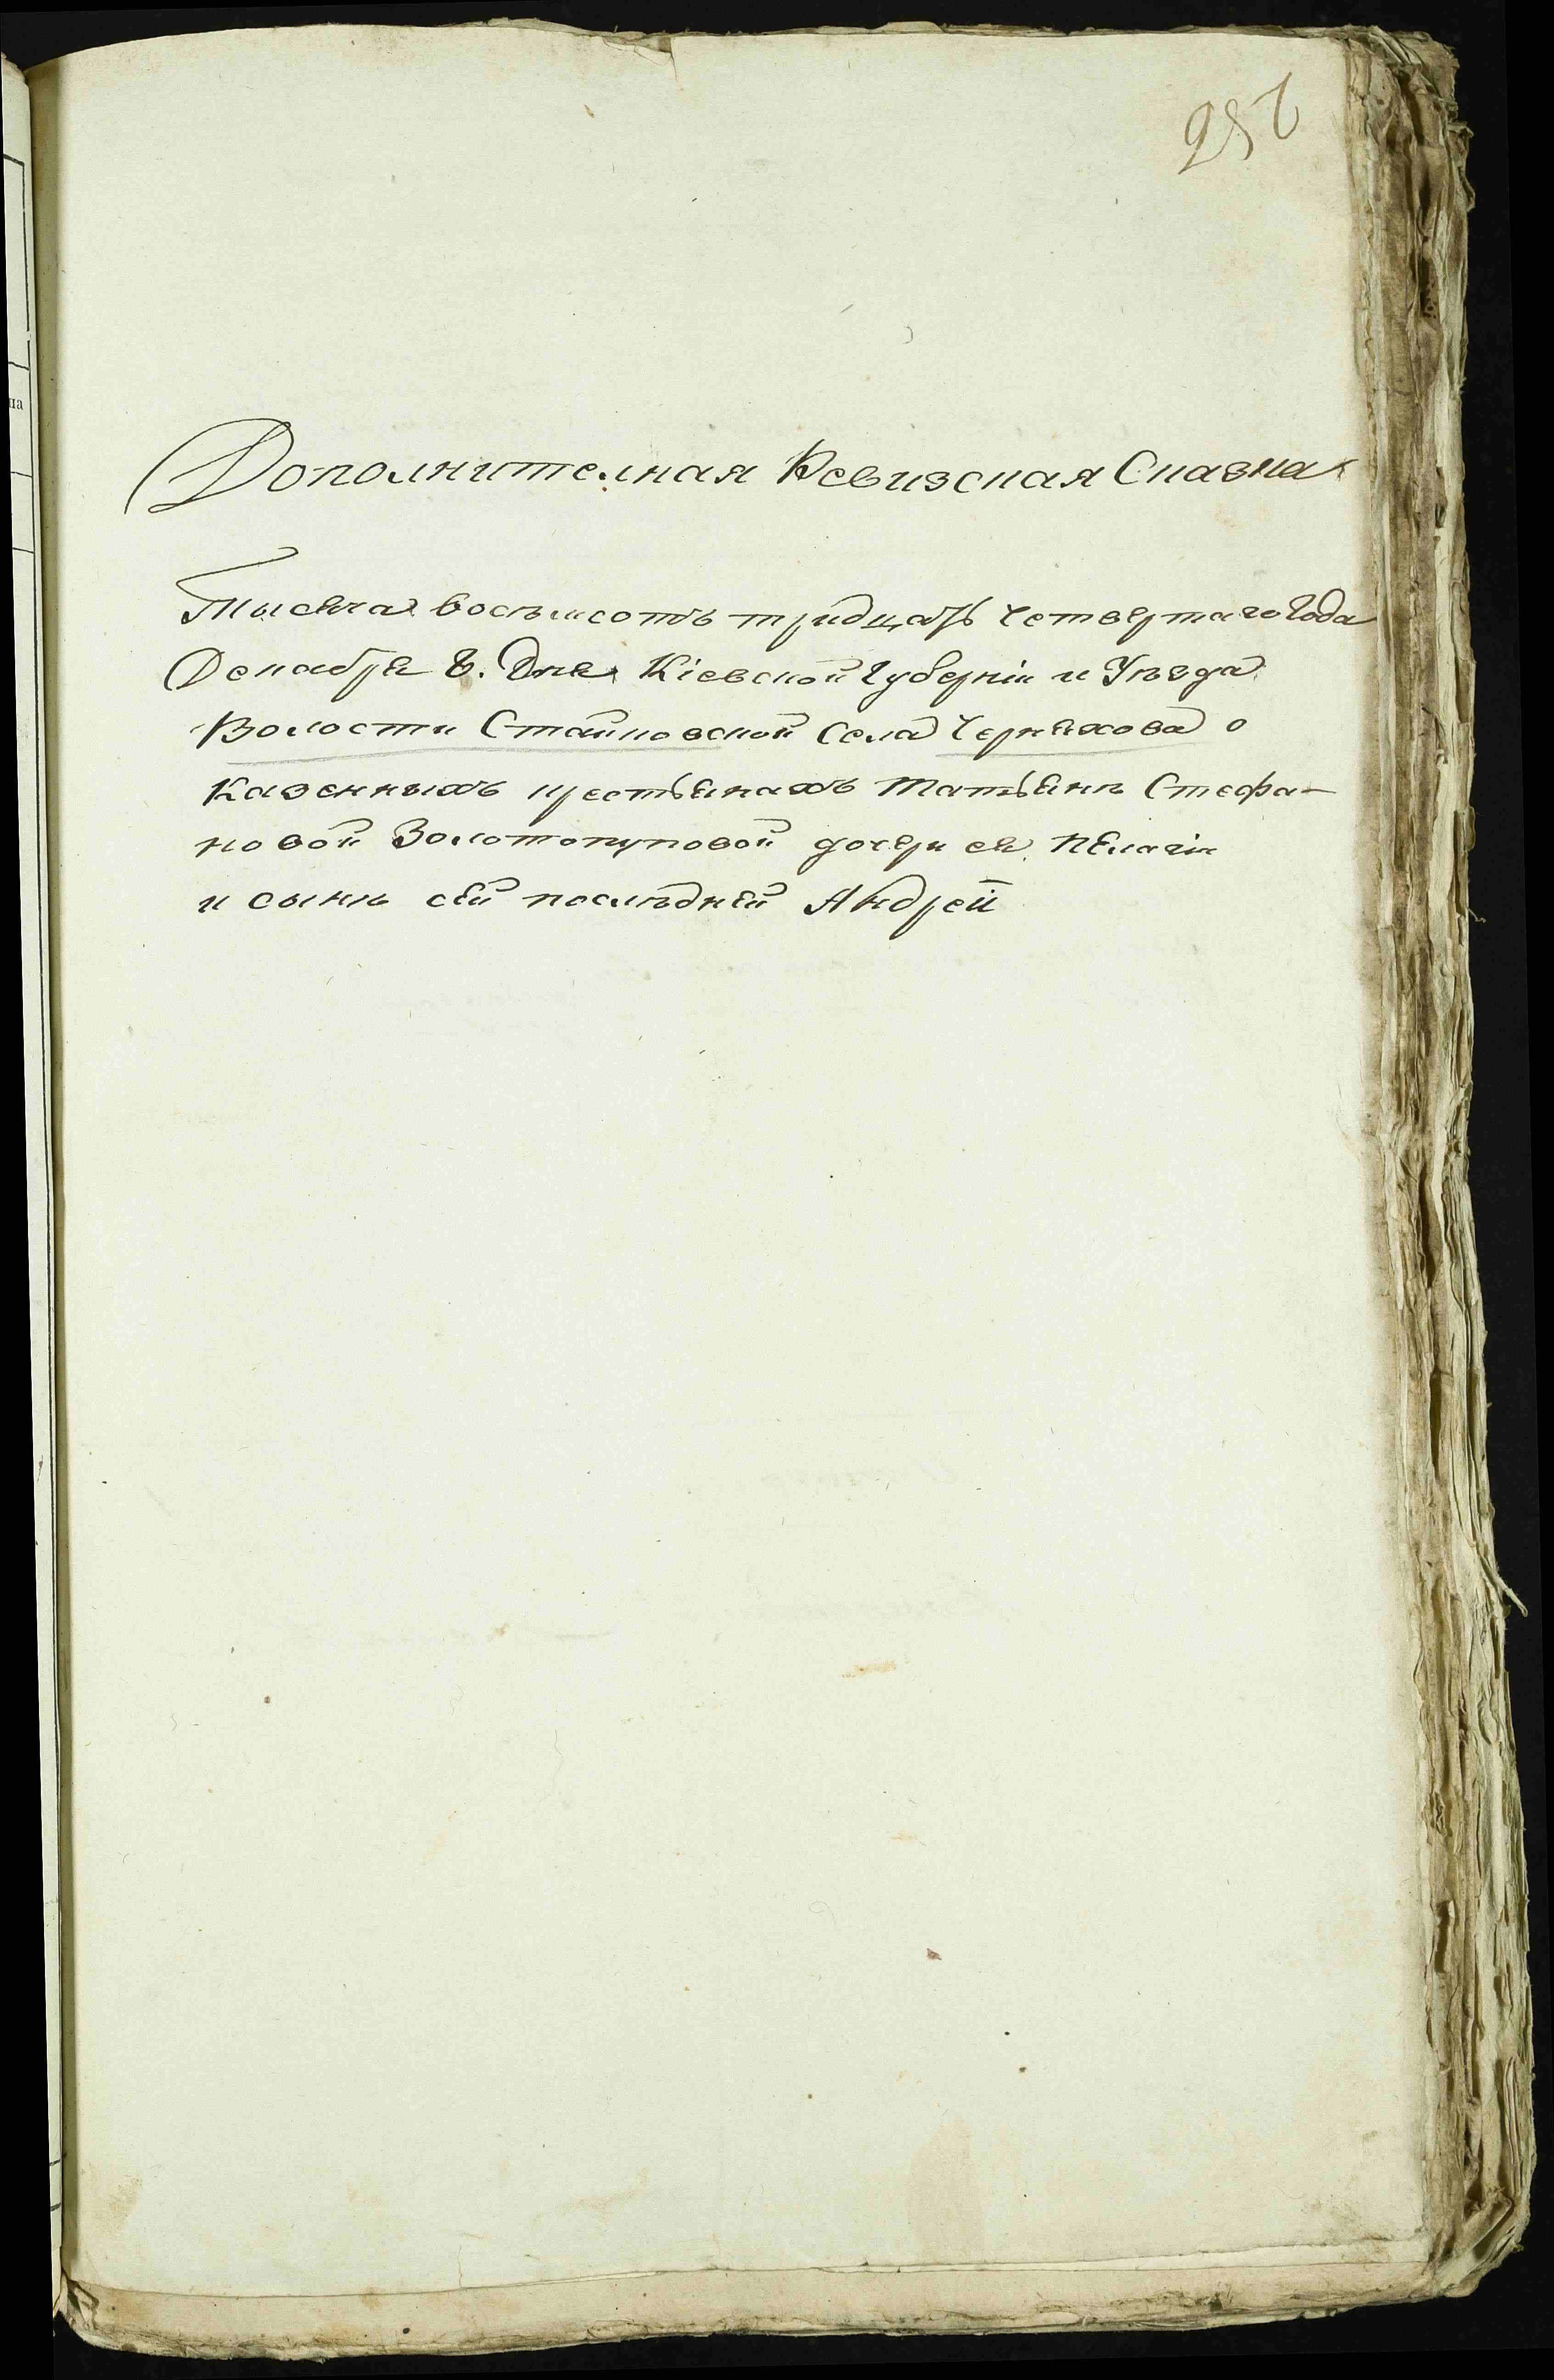 Дополнителная Ревизская Сказка
Тысяча восъмсотъ тридцать Четвертаго Года
Декабря 8. Дня Кіевской Губерніи и Уѣзда
Волости Стайковской Села Черняхова о
Казенныхъ крестьянахъ Татьянѣ Стефа-
новой Золотопуповой дочери ея Пелагіи
и сынѣ сей послѣдней Андрей